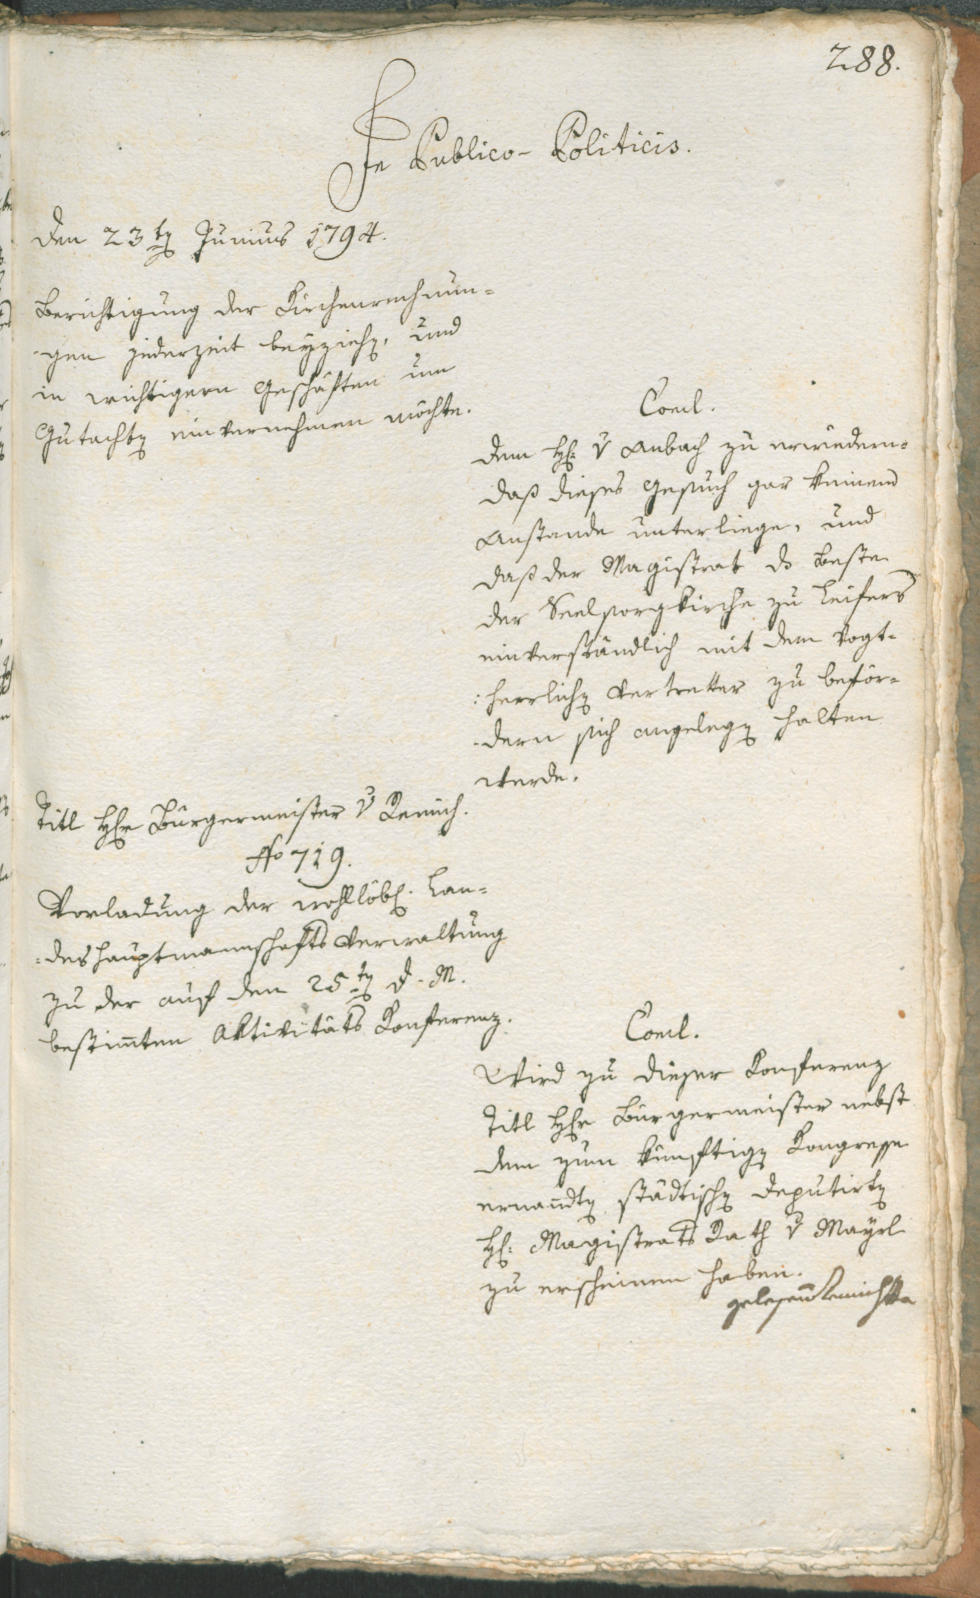 288.
In Publico-Politicis.
den 23ten Junius 1794.
Berichtigung der Kirchenrechnun-
-gen jederzeit beyziehen, und
in wichtigern Geschäften um
Gutachten einvernehmen möchte.
Concl.
dem H: v Anbach zu erwiedern-
daß dieses Gesuch gar keinem
Anstande unterliege, und
daß der Magistrat ds Beste
der Seelsorgkirche zu Leifers
einverständlich mit dem Vogt-
:herrlichen Vertretter zu beför-
-dern sich angelegen halten
werde.
Titl Hr Bürgermeister v Remich.
No 719.
Vorladung der wohllöbl: Lan-
:deshauptmannschafts Verwaltung
zu der auf den 25ten d. M.
bestim̅ten Aktivitäts Konferenz.
Concl.
Wird zu dieser Konferenz
Titl Hr Bürgermeister nebst
dem zum künftigen Kongresse
ernan̅dten städtischen Deputirten
H: Magistrats Rath v Mayrl
zu erscheinen haben.
gelesen Remich